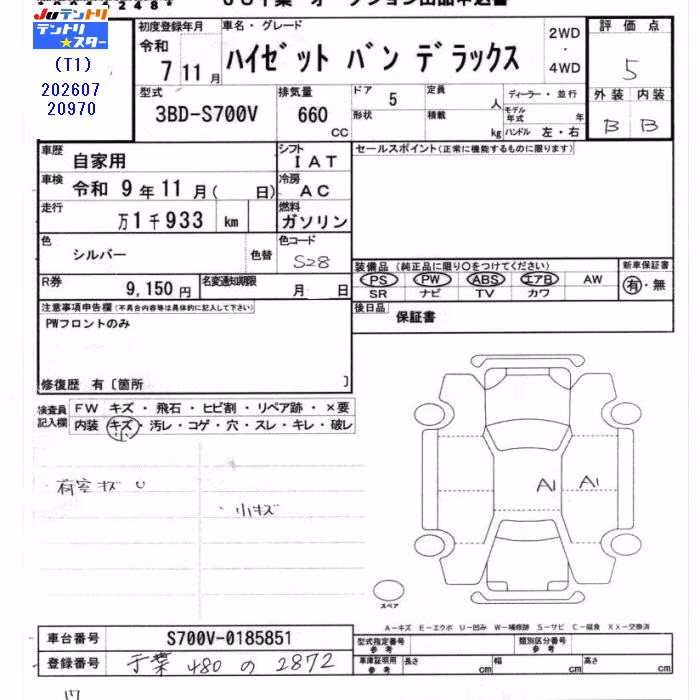 JU テントリ
テントリ★スター
(T1)
202607
20970
初度登録年月
令和 7 11 月
車名・グレード
ハイゼット バン デラックス
2WD
・
4WD
評価点
5
外装 内装
B B
型式
3BD-S700V
排気量
660
CC
ドア 5
形状
定員 人
積載 kg
ディーラー・並行
モデル年式 年
ハンドル 左・右
車歴 自家用
シフト IAT
セールスポイント(正常に機能するものに限ります)
車検 令和 9 年 11 月( 日)
冷房 AC
走行 万 1 千 933 km
燃料 ガソリン
色 シルバー 色替
色コード S28
装備品 (純正品に限り○をつけてください)
PS PW ABS エアB AW
SR ナビ TV カワ
新車保証書
有・無
R券 9,150 円
名変通知期限 月 日
後日品 保証書
注意事項申告欄(不具合内容等は具体的に記入して下さい)
PWフロントのみ
修復歴 有〔箇所 〕
検査員記入欄
FW キズ・飛石・ヒビ割・リペア跡・×要
内装 キズ・汚レ・コゲ・穴・スレ・キレ・破レ
荷室キズ U
小キズ
A1 A1
スペア
A-キズ E-エクボ U-凹み W-補修跡 S-サビ C-腐食 XX-交換済
車台番号 S700V-0185851
型式指定番号 参考
類別区分番号 参考
登録番号 千葉 480 の 2872
車庫証明用 参考
長さ cm 幅 cm 高さ cm